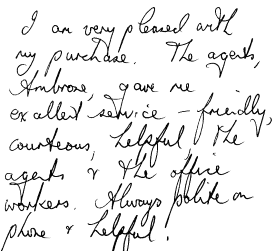 I am very pleased with
my purchase. The agents,
Ambrose, gave me
excellent service – friendly,
courteous, helpful, the
agents & the office
workers. Always polite on
phone & helpful!